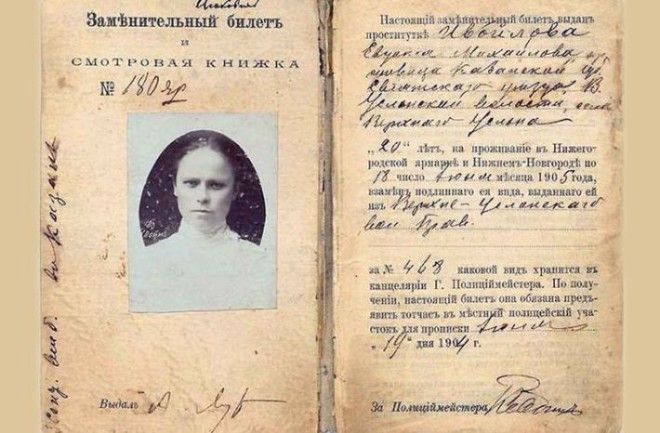 Замѣнительный билетъ
и
СМОТРОВАЯ КНИЖКА
№ 180 яр
Выдалъ
Настоящій замѣнительный билетъ выданъ
проституткѣ Ивойлова
Евдокія Михайлова
Казанской
Свіяжскаго уѣзда, В.
Услонской волости, села
Верхняго Услона
„20“ лѣтъ, на проживаніе въ Нижего-
родской ярмаркѣ и Нижнемъ-Новгородѣ по
18 число іюня мѣсяца 1905 года,
взамѣнъ подлиннаго ея вида, выданнаго ей
изъ Верхне-Услонскаго
вол прав.
за № 468 каковой видъ хранится въ
канцеляріи Г. Полиціймейстера. По полу-
ченіи, настоящій билетъ она обязана предъ-
явить тотчасъ въ мѣстный полицейскій уча-
стокъ для прописки іюня
„19“ дня 1904 г.
За Полиціймейстера